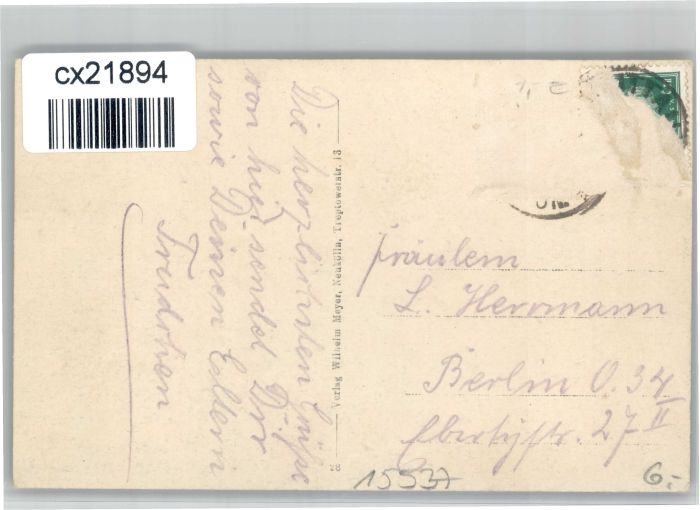 cx21894
Die herzlichsten Grüße
von hier sendet Dir
sowie Deinen Eltern
Trudchen
Verlag Wilhelm Meyer, Neukölln, Treptowerstr. 13
28
Fräulein
L. Herrmann
Berlin O. 34
Ebertystr. 27 II
15537
6.-